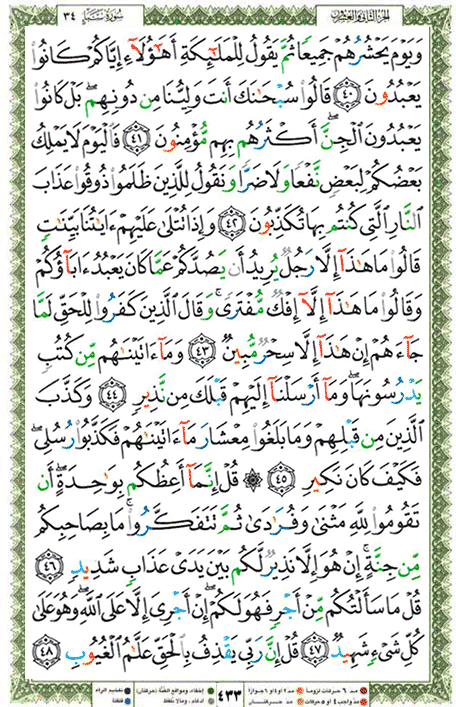 الجزء الثاني والعشرون سورة سبإ ٣٤
وَيَوْمَ يَحْشُرُهُمْ جَمِيعًا ثُمَّ يَقُولُ لِلْمَلَٰٓئِكَةِ أَهَٰٓؤُلَآءِ إِيَّاكُمْ كَانُوا۟
يَعْبُدُونَ ٤٠ قَالُوا۟ سُبْحَٰنَكَ أَنتَ وَلِيُّنَا مِن دُونِهِم ۖ بَلْ كَانُوا۟
يَعْبُدُونَ ٱلْجِنَّ ۖ أَكْثَرُهُم بِهِم مُّؤْمِنُونَ ٤١ فَٱلْيَوْمَ لَا يَمْلِكُ
بَعْضُكُمْ لِبَعْضٍ نَّفْعًا وَلَا ضَرًّا وَنَقُولُ لِلَّذِينَ ظَلَمُوا۟ ذُوقُوا۟ عَذَابَ
ٱلنَّارِ ٱلَّتِى كُنتُم بِهَا تُكَذِّبُونَ ٤٢ وَإِذَا تُتْلَىٰ عَلَيْهِمْ ءَايَٰتُنَا بَيِّنَٰتٍ
قَالُوا۟ مَا هَٰذَآ إِلَّا رَجُلٌ يُرِيدُ أَن يَصُدَّكُمْ عَمَّا كَانَ يَعْبُدُ ءَابَآؤُكُمْ
وَقَالُوا۟ مَا هَٰذَآ إِلَّآ إِفْكٌ مُّفْتَرًى ۚ وَقَالَ ٱلَّذِينَ كَفَرُوا۟ لِلْحَقِّ لَمَّا
جَآءَهُمْ إِنْ هَٰذَآ إِلَّا سِحْرٌ مُّبِينٌ ٤٣ وَمَآ ءَاتَيْنَٰهُم مِّن كُتُبٍ
يَدْرُسُونَهَا ۖ وَمَآ أَرْسَلْنَآ إِلَيْهِمْ قَبْلَكَ مِن نَّذِيرٍ ٤٤ وَكَذَّبَ
ٱلَّذِينَ مِن قَبْلِهِمْ وَمَا بَلَغُوا۟ مِعْشَارَ مَآ ءَاتَيْنَٰهُمْ فَكَذَّبُوا۟ رُسُلِى ۖ
فَكَيْفَ كَانَ نَكِيرِ ٤٥ ۞ قُلْ إِنَّمَآ أَعِظُكُم بِوَٰحِدَةٍ ۖ أَن
تَقُومُوا۟ لِلَّهِ مَثْنَىٰ وَفُرَٰدَىٰ ثُمَّ تَتَفَكَّرُوا۟ ۚ مَا بِصَاحِبِكُم
مِّن جِنَّةٍ ۚ إِنْ هُوَ إِلَّا نَذِيرٌ لَّكُم بَيْنَ يَدَىْ عَذَابٍ شَدِيدٍ ٤٦
قُلْ مَا سَأَلْتُكُم مِّنْ أَجْرٍ فَهُوَ لَكُمْ ۖ إِنْ أَجْرِىَ إِلَّا عَلَى ٱللَّهِ ۖ وَهُوَ عَلَىٰ
كُلِّ شَىْءٍ شَهِيدٌ ٤٧ قُلْ إِنَّ رَبِّى يَقْذِفُ بِٱلْحَقِّ عَلَّٰمُ ٱلْغُيُوبِ ٤٨
مد ٦ حركات لزوما مد ٢ او ٤ او ٦ جوازا ٤٣٣ إخفاء، ومواقع الغنة (حركتان) تفخيم الراء
مد واجب ٤ او ٥ حركات مد حركتان إدغام، وما لا يلفظ قلقلة